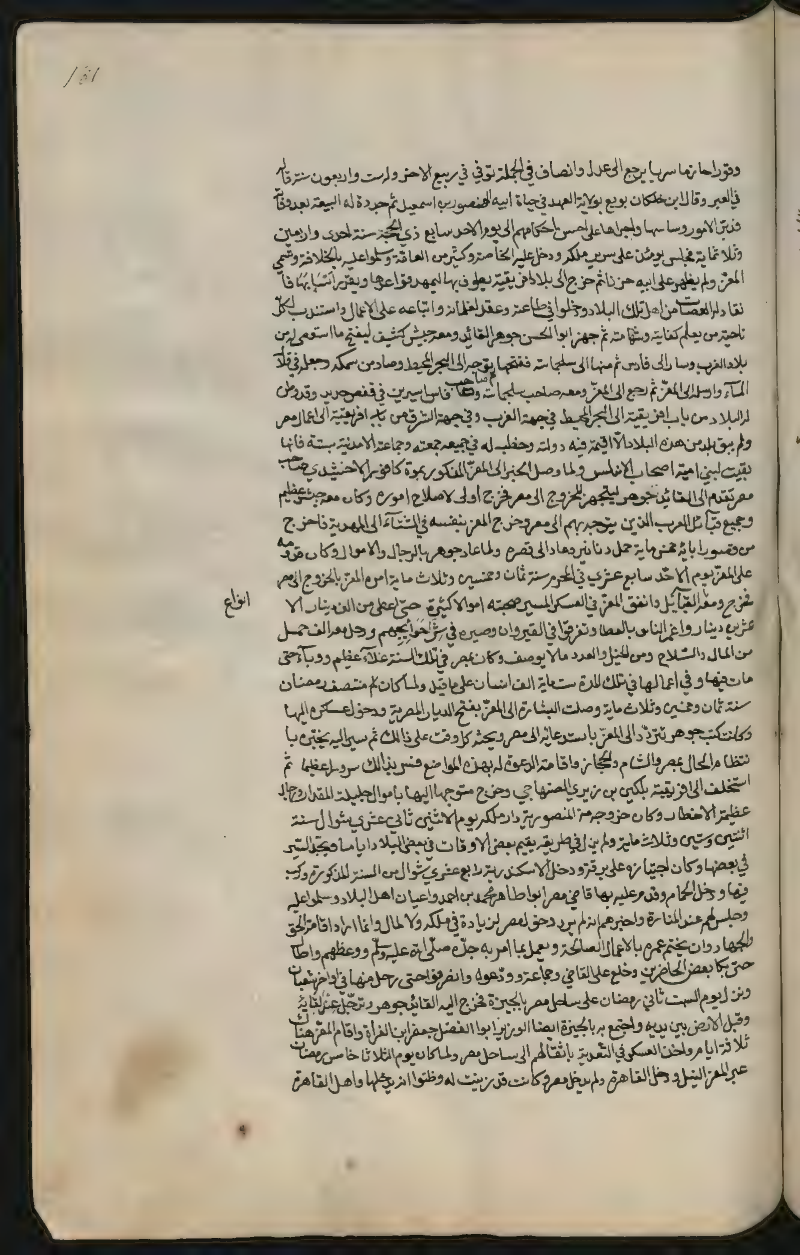 وقورا حازما سريا يرجع الى عدل وانصاف في الجملة توفي في ربيع الاخر وله ست واربعون سنة قاله
في العبر وقال ابن خلكان بويع بولاية العهد في حياة ابيه المنصور بن اسمعيل ثم جددت له البيعة بعد وفاته
فدبر الامور وساسها واجراها على احسن احكامها الى يوم الاحد سابع ذي الحجة سنة احدى واربعين
وثلاثماية فجلس يومئذ على سرير ملكه ودخل عليه الخاصة وكثير من العامة وسلموا عليه بالخلافة وتسمى
المعز ولم يظهر على ابيه حزنا ثم خرج الى بلاد افريقية يطوف بها ليمهد قواعدها ويقرر اسبابها فا
نقاد له العصاة من اهل تلك البلاد ودخلوا في طاعته وعقد لغلمانه واتباعه على الاعمال واستندب لكل
ناحية من يعلم كفايته وشهامته ثم جهز ابو الحسن جوهر القائد ومعه جيش كثيف ليفتح ما استعصى له من
بلاد الغرب وسار الى فاس ثم منها الى سلجماسة ففتحها ثم توجه الى البحر المحيط وصاد من سمكه وجعله في قلال
المآء وارسله الى المعز ثم رجع الى المعز ومعه صاحب سلجماسة وصاحب فاس اسيرين في قفص حديد وقد وطن
له البلاد من باب افريقية الى البحر المحيط في جهة الغرب وفي جهة الشرق من باب افريقية الى اعمال مصر
ولم يبق بلد من هذه البلاد الا اقيمة فيه دولته وخطب له في جميعه جمعته وجماعته الا مدينة سبتة فانها
بقيت لبني امية اصحاب الاندلس ولما وصل الخبر الى المعز المذكور بموة كافور الاخشيدي صاحب
مصر تقدم الى القائد جوهر ليتجهز للخروج الى مصر فخرج اولى لاصلاح اموره وكان معه جيش عظيم
وجميع قبآئل العرب الذين يتوجه بهم الى مصر وخرج المعز بنفسه في الشتآء الى المهدية فاخرج
من قصور ابائه خمس ماية حمل دنانير وعاد الى قصره ولما عاد جوهر بالرجال والاموال وكان قدومه
على المعز يوم الاحد سابع عشري في المحرم سنة ثمان وخمسين وثلاث ماية امره المعز بالخروج الى مصر
فخرج ومعه القبآئل وانفق المعز في العسكر المسير صحبته اموالا كثيرة حتى اعطى من الف دينار الا
عشرين دينار واغمر الناس بالعطا وتفرقوا في القيروان وصبره في شراء حوايجهم ورحل معه الف حمل
من المال والسلاح ومن الخيل والعدد ما لا يوصف وكان بمصر في تلك السنة غلآء عظيم ووبآء حتى
مات فيها وفي اعمالها في تلك المدة ست ماية الف انسان على ما قيل ولما كان منتصف رمضان
سنة ثمان وخمسين وثلاث ماية وصلت البشارة الى المعز بفتح الديار المصرية ودخول عسكره اليها
وكانت كتب جوهر تتردد الى المعز باستدعائه الى مصر ويحثه كل وقت على ذالك ثم سير اليه يخبره با
نتظام الحال بمصر والشام والحجاز واقامة الدعوة له بهذه المواضع فسر بذالك سرورا عظيما ثم
استخلف الى افريقية بلكين بن زيري الصنهاجي وخرج متوجها اليها باموال جليلة المقدار ورجال
عظيمة الاخطار وكان خروجه من المنصورية دار ملكه يوم الاثنين ثاني عشري شوال سنة
اثنتين وستين وثلاث ماية ولم يزل في طريقه يقيم بعض الاوقات في بعض البلاد اياما ويجد السير
في بعضها وكان اجتيازه على برقة ودخل الاسكندرية رابع عشري شوال من السنة المذكورة وركب
فيها ودخل الحمام وقدم عليه بها قاضي مصر ابوا طاهر محمد بن احمد واعيان اهل البلاد وسلموا عليه
وجلس لهم عند المنارة واخبرهم انه لم يرد دخول مصر لزيادة في ملكه ولا لمال وانما اراد اقامة الحق
والجهاد وان يختم عمره بالاعمال الصالحة ويعمل بما امر به جده صلى الله عليه وسلم ووعظهم واطال
حتى بكا بعض الحاضرين وخلع على القاضي وجماعة وودعوه وانصرفوا حتى رحل منها في اواخر شعبان
ونزل يوم السبت ثاني رمضان على ساحل مصر بالجيزة فخرج اليه القائد جوهر وترجل عند لقائه
وقبل الارض بين يديه واجتمع به بالجيزة ايضا الوزير ابوا الفضل جعفر ابن الفراة واقام المعز هناك
ثلاثة ايام واخذ العسكر في التعدية باثقالهم الى ساحل مصر ولما كان يوم الثلاثا خامس رمضان
عبر المعز النيل ودخل القاهرة ولم يدخل مصر وكانت قد زينت له وظنوا انه يدخلها واهل القاهرة
انواع